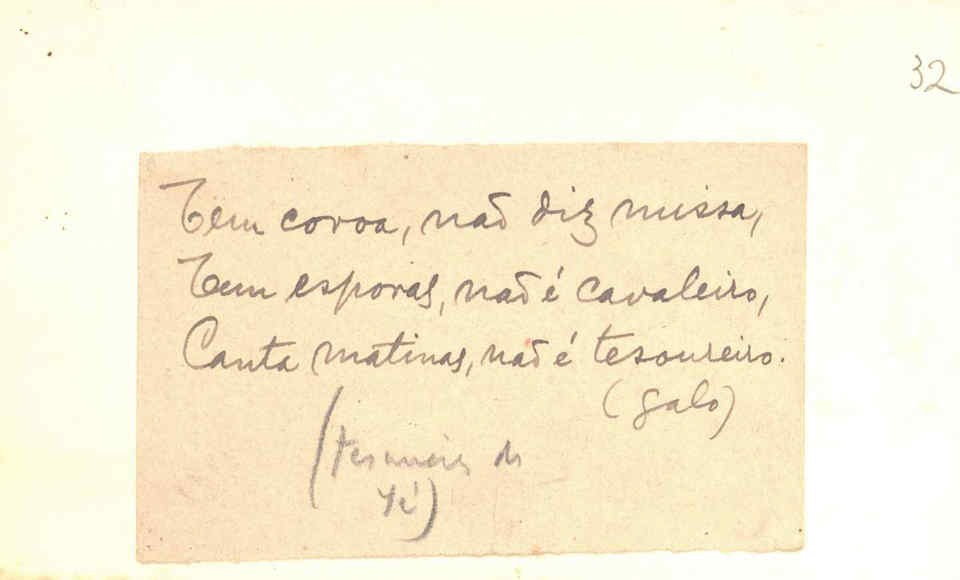 32
Tem coroa, não diz missa,
Tem esporas, não é cavaleiro,
Canta matinas, não é tesoureiro.
(galo)
(tesoureiro da
Sé)